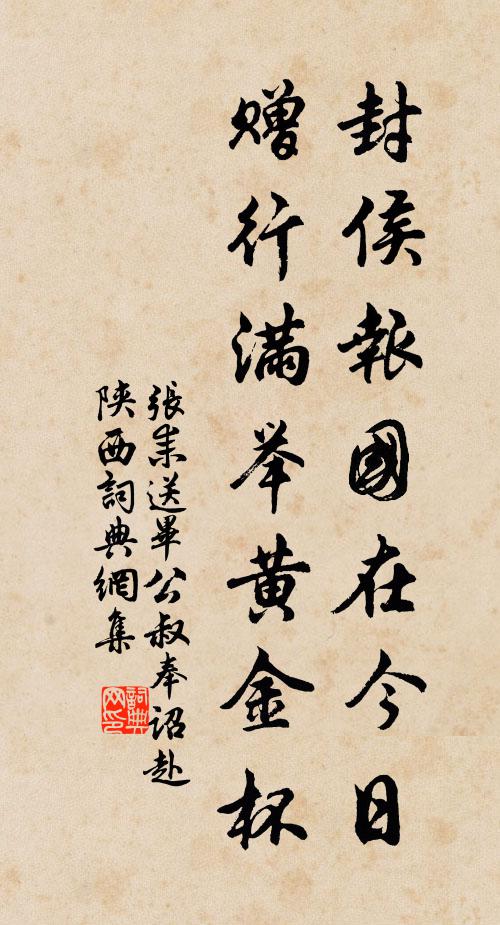 封侯報國在今日
贈行满举黄金杯
張耒送畢公叔奉詔赴
陝西詞典網集
詞典网印